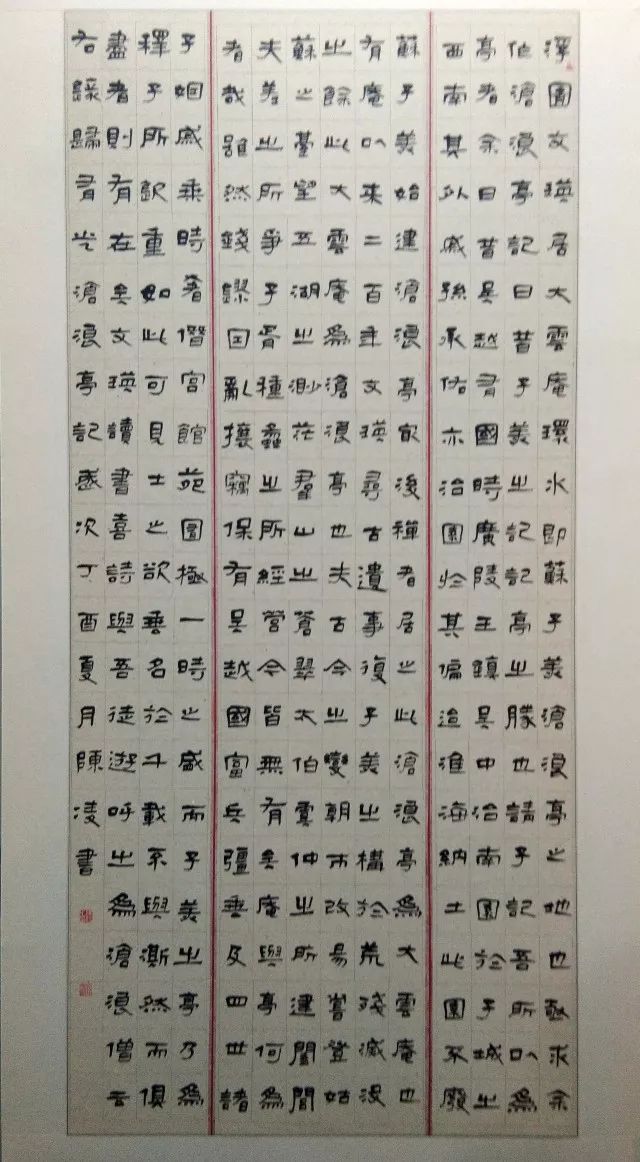 浮圖文瑛居大雲庵環水即蘇子美滄浪亭之地也亟求余
作滄浪亭記曰昔子美之記記亭之勝也請子記吾所以為
亭者余曰昔吳越有國時廣陵王鎮吳中治南園於子城之
西南其外戚孫承佑亦治園於其偏迨淮海納土此園不廢
蘇子美始建滄浪亭最後禪者居之此滄浪亭為大雲庵也
有庵以來二百年文瑛尋古遺事復子美之構於荒殘滅没
之餘此大雲庵為滄浪亭也夫古今之變朝市改易嘗登姑
蘇之臺望五湖之渺茫羣山之蒼翠太伯虞仲之所建闔閭
夫差之所爭子胥種蠡之所經營今皆無有矣庵與亭何為
者哉雖然錢鏐因亂攘竊保有吳越國富兵彊垂及四世諸
子姻戚乘時奢僭宮館苑囿極一時之盛而子美之亭乃為
釋子所欽重如此可見士之欲垂名於千載不與澌然而俱
盡者則有在矣文瑛讀書喜詩與吾徒遊呼之為滄浪僧云
右録歸有光滄浪亭記歲次丁酉夏月陳凌書